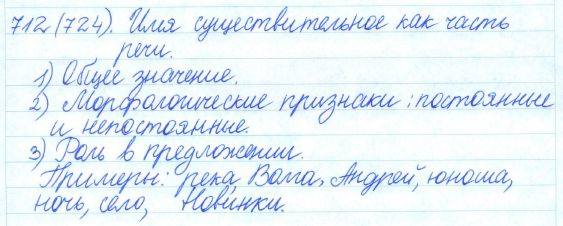 712 (724). Имя существительное как часть
речи.
1) Общее значение.
2) Морфологические признаки: постоянные
и непостоянные.
3) Роль в предложении.
Примеры: река, Волга, Андрей, юноша,
ночь, село, Новинки.